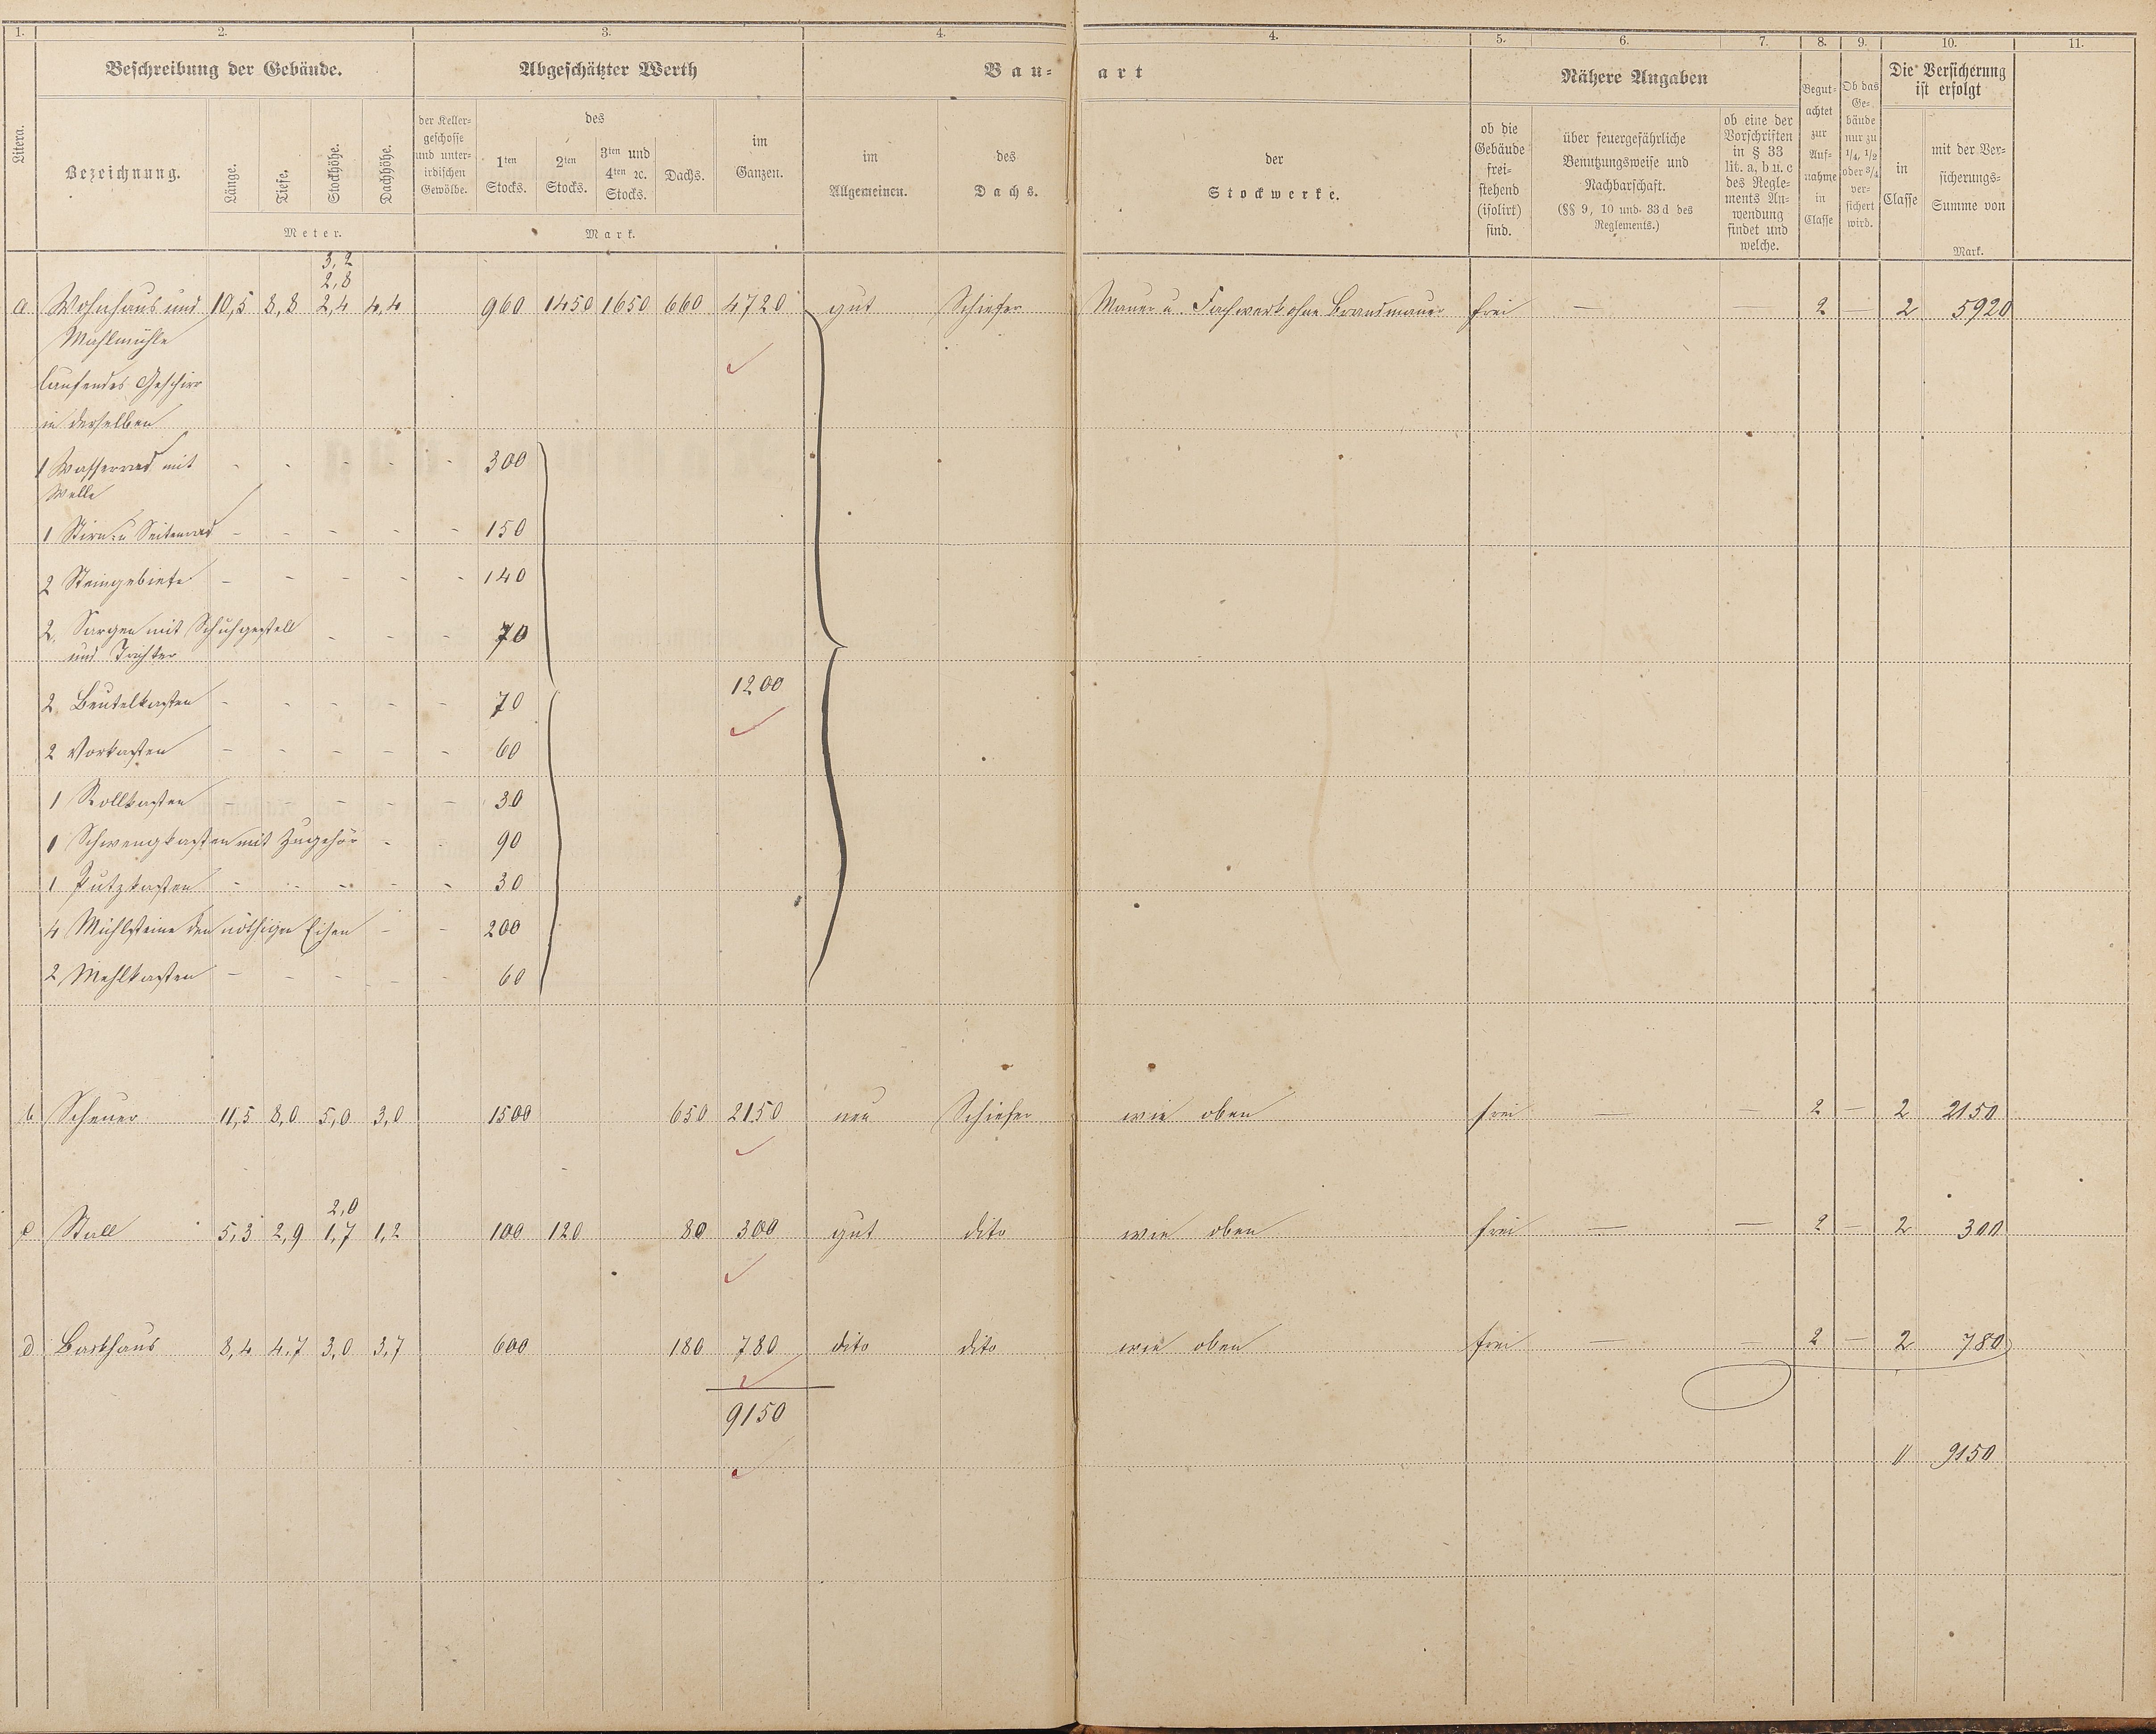 1. 2. 3. 4. 4. 5. 6. 7. 8. 9. 10. 11.
Litera.
Beschreibung der Gebäude.
Abgeschätzter Werth
Bau-art
Nähere Angaben
Begut-
achtet
zur
Auf-
nahme
in
Classe
Ob das
Ge-
bäude
nur zu
1/4, 1/2
oder 3/4
ver-
sichert
wird.
Die Versicherung
ist erfolgt
Bezeichnung.
Länge.
Tiefe.
Stockhöhe.
Dachhöhe.
Meter.
der Keller-
geschosse
und unter-
irdischen
Gewölbe.
des
1ten
Stocks.
2ten
Stocks.
3ten und
4ten 2c.
Stocks.
Dachs.
im
Ganzen.
Mark.
im
Allgemeinen.
des
Dachs.
der
Stockwerke.
ob die
Gebäude
frei-
stehend
(isolirt)
sind.
über feuergefährliche
Benutzungsweise und
Nachbarschaft.
(§§ 9, 10 und 33 d des
Reglements.)
ob eine der
Vorschriften
in § 33
lit. a, b u. c
des Regle-
ments An-
wendung
findet und
welche.
in
Classe
mit der Ver-
sicherungs-
Summe von
Mark.
3,2
2,8
a Wohnhaus und 10,5 8,8 2,4 4,4 960 1450 1650 660 4720 gut Schiefer Mauer u. Fachwerk ohne Brandmauer frei — — 2 — 2 5920
Mahlmühle
laufendes Geschirr
in derselben
1 Wasserrad mit - - - - - 300
Welle
1 Stirn- u Seitenrad - - - - - 150
2 Steingebiete - - - - - 140
2 Zargen mit Schuhgestell - - - 70
und Trichter
1200
2 Beutelkasten - - - - - 70
2 Vorkasten - - - - - 60
1 Rollkasten - - - - - 30
1 Schwengkasten mit Zugehör - - 90
1 Putzkasten - - - - - 30
4 Mühlsteine den nöthigen Eisen - - 200
2 Mehlkasten - - - - - 60
b Scheuer 11,5 8,0 5,0 3,0 1500 650 2150 neu Schiefer wie oben frei — — 2 — 2 2150
2,0
c Stall 5,3 2,9 1,7 1,2 100 120 80 300 gut dito wie oben frei — — 2 — 2 300
d Backhaus 8,4 4,7 3,0 3,7 600 180 780 dito dito wie oben frei — — 2 — 2 780
9150
11 9150